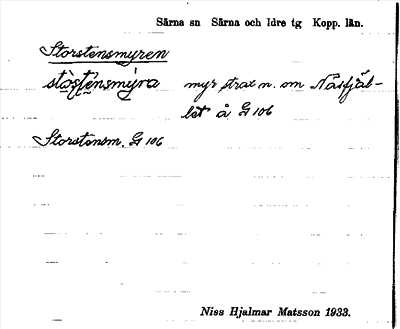 Särna sn Särna och Idre tg Kopp. län.
Storstensmyren
stòṣtẹnsmỵra myr strax n. om Nåsfjäl-
let å G 106
Storstensm. G 106
Niss Hjalmar Matsson 1933.